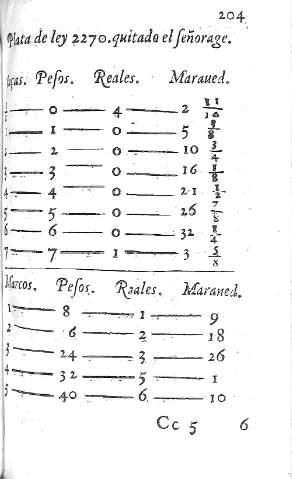 204
Plata de ley 2270. quitado el señorage.
Pesos. Reales. Maraued.
0 4 2 11/16
1 0 5 3/8
2 0 10 3/4
3 — 3 0 16 1/8
4 — 4 0 21 1/2
5 — 5 — 0 26 7/8
6 — 6 0 32 1/4
7 — 7 — 1 — 3 5/8
Marcos. Pesos. Reales. Maraued.
1 — 8 — 1 — 9
2 — 6 — 2 — 18
3 — 24 — 3 — 26
4 — 32 — 5 — 1
5 — 40 — 6 — 10
Cc 5 6